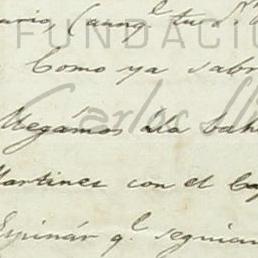 urio, (aunq.e tu d.n
FUNDACIÓ
Como ya sabr
Carlos
Llegámos ála bah
Martinez con el
Espinár q.e seguian